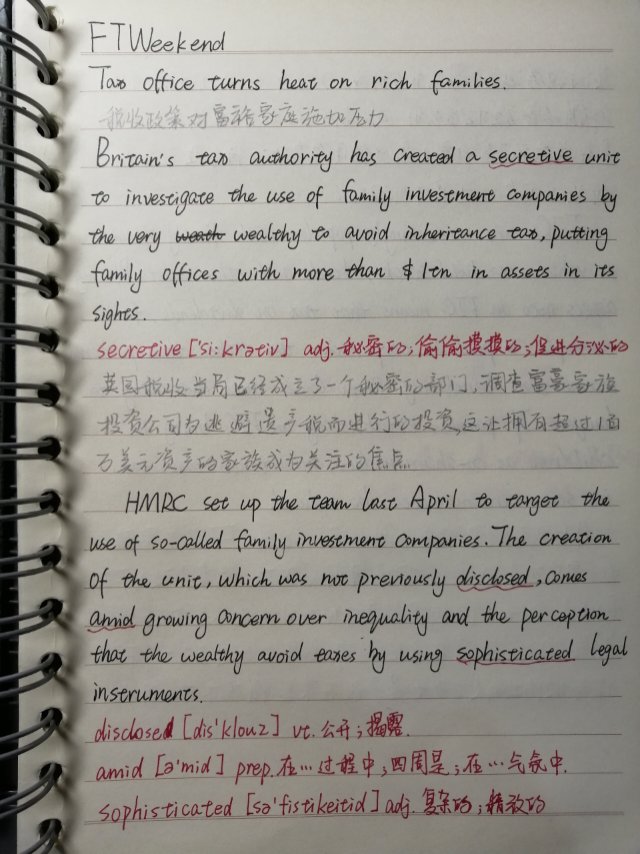 FTWeekend
Tax office turns heat on rich families.
税收政策对富裕家庭施加压力
Britain's tax authority has created a secretive unit
to investigate the use of family investment companies by
the very wealth wealthy to avoid inheritance tax, putting
family offices with more than $1tn in assets in its
sights.
secretive ['si:krətiv] adj. 秘密的；偷偷摸摸的；促进分泌的
英国税收当局已经成立了一个秘密的部门，调查富豪家族
投资公司为逃避遗产税而进行的投资，这让拥有超过1百
万美元资产的家族成为关注的焦点
HMRC set up the team last April to target the
use of so-called family investment companies. The creation
of the unit, which was not previously disclosed, comes
amid growing concern over inequality and the perception
that the wealthy avoid taxes by using sophisticated legal
instruments.
disclosed [dis'klouz] vt. 公开；揭露.
amid [ə'mid] prep. 在…过程中；四周是；在…气氛中.
sophisticated [sə'fistikeitid] adj. 复杂的；精致的